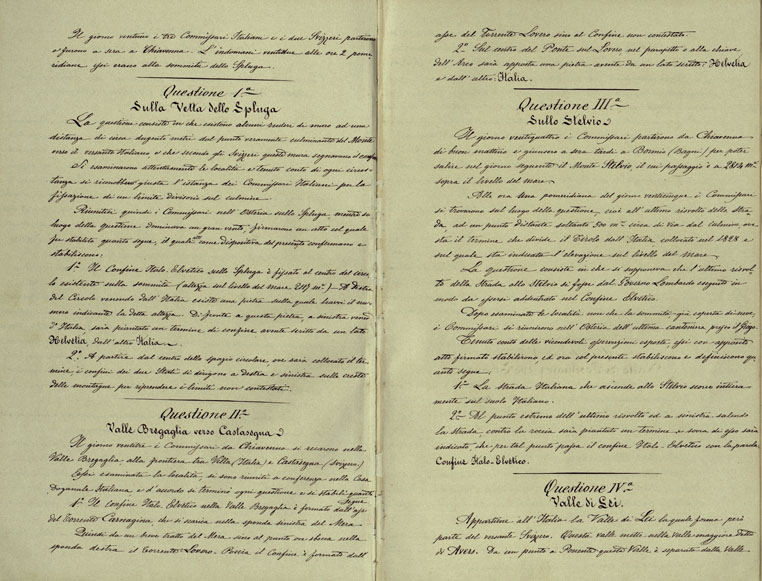 Il giorno ventuno i tre Commissari Italiani e i due Svizzeri partirono
e furono a sera a Chiavenna. L'indomani ventidue alle ore 2 pome-
ridiane essi erano alla sommità dello Spluga.
Questione I.a
Sulla Vetta dello Spluga
La questione consiste in che esistono alcuni ruderi di muro ad una
distanza di circa dugento metri dal punto veramente culminante del Monte
verso il versante Italiano e che secondo gli Svizzeri questi mura segnavano il confine
Si esaminarono attentamente le località e tenuto conto di ogni circo-
stanza si riconobbe giusta l'istanza dei Commissari Italiani per la
fissazione di un limite divisorio sul culmine.
Riunitisi quindi i Commissari nell'Osteria sullo Spluga, mentre sul
luogo della questione dominava un gran vento, firmarono un atto col quale
fu stabilito quanto segue, il quale come dispositiva del presente confermano e
stabiliscono:
1.° Il Confine Italo-Elvetico sullo Spluga è fissato al centro del circo-
lo esistente sulla sommità (altezza sul livello del mare 2117 m.i) A Destra
del Circolo venendo dall'Italia esiste una pietra sulla quale leggesi il nu-
mero indicante la detta altezza. Di fronte a questa pietra, a sinistra venendo
d'Italia, sarà piantato un termine di confine avente scritto da un lato
Helvetia, dall'altro Italia.
2.° A partire dal centro dello spazio circolare ove sarà collocato il ter-
mine, i confini dei due Stati si dirigono a destra e sinistra sulla cresta
delle montagne per riprendere i limiti non contestati.
Questione II.a
Valle Bregaglia verso Castasegna
Il giorno ventitre i Commissari da Chiavenna si recarono nella
Valle Bregaglia alla frontiera tra Villa (Italia) e Castasegna (Svizzera)
Essi esaminata la località, si sono riuniti a conferenza nella Casa
Doganale Italiana, e d'accordo si terminò ogni questione e si stabilì quanto
segue
1.° Il confine Italo-Elvetico nella Valle Bregaglia è formato dall'asse
del Torrente Carnagina che si scarica nella sponda sinistra del Mera
Quindi da un breve tratto del Mera sino al punto ove sbocca nella
sponda destra il torrente Lovero. Poscia il Confine è formato dall'
asse del Torrente Lovero sino al Confine non contestato.
2.° Sul centro del Ponte sul Lovero nel parapetto o alla chiave
dell'Arco sarà apposta una pietra avente da un lato scritto: Helvetia
e dall'altro: Italia.
Questione III.a
Sullo Stelvio
Il giorno ventiquattro i Commissari partirono da Chiavenna
di buon mattino e giunsero a sera tardi a Bormio (Bagni) per poter
salire nel giorno seguente il Monte Stelvio, il cui passaggio è a 2814 m.i
sopra il livello del mare.
Alla ora una pomeridiana del giorno venticinque i Commissari
si trovarono sul luogo della questione, cioè all'ultimo risvolto della Stra-
da, ad un punto distante soltanto 500 m.i circa di via dal culmine, ove
sta il termine che divide il Tirolo dall'Italia collocato nel 1828 e
sul quale sta indicata l'elevazione sul livello del mare.
La questione consiste in che si supponeva che l'ultimo risvol-
to della Strada allo Stelvio si fosse dal Governo Lombardo eseguito in
modo da essersi addentrato nel Confine Elvetico
Dopo esaminate le località, non che la sommità già coperta di neve,
i Commissari si riunirono nell'Osteria dell'ultima cantoniera presso il giogo.
Tenuto conto delle vicendevoli osservazioni esposte, essi con apposito
atto firmato stabilirono ed ora col presente stabiliscono e definiscono qu-
anto segue:
1.° La Strada Italiana che ascende allo Stelvio scorre intiera-
mente sul suolo Italiano.
2.° Al punto estremo dell'ultimo risvolto ed a sinistra salendo
la strada, contro la roccia sarà piantato un termine e sovra di esso sarà
indicato che per tal punto passa il confine Italo-Elvetico con la parola
Confine Italo-Elvetico.
Questione IV.a
Valle di Lei.
Appartiene all'Italia la Valle di Lei la quale forma però
parte del versante Svizzero. Questa valle mette nella Valle maggiore detta
di Avers. Da un punto a Ponente questa Valle è separata dalla Valle